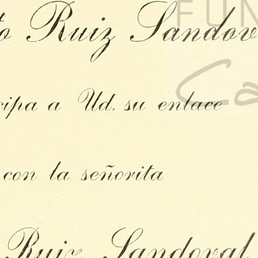 to Ruiz Sandov
FUN
Ca
cipa a Ud. su enlace
con la señorita
Ruiz Sandoval